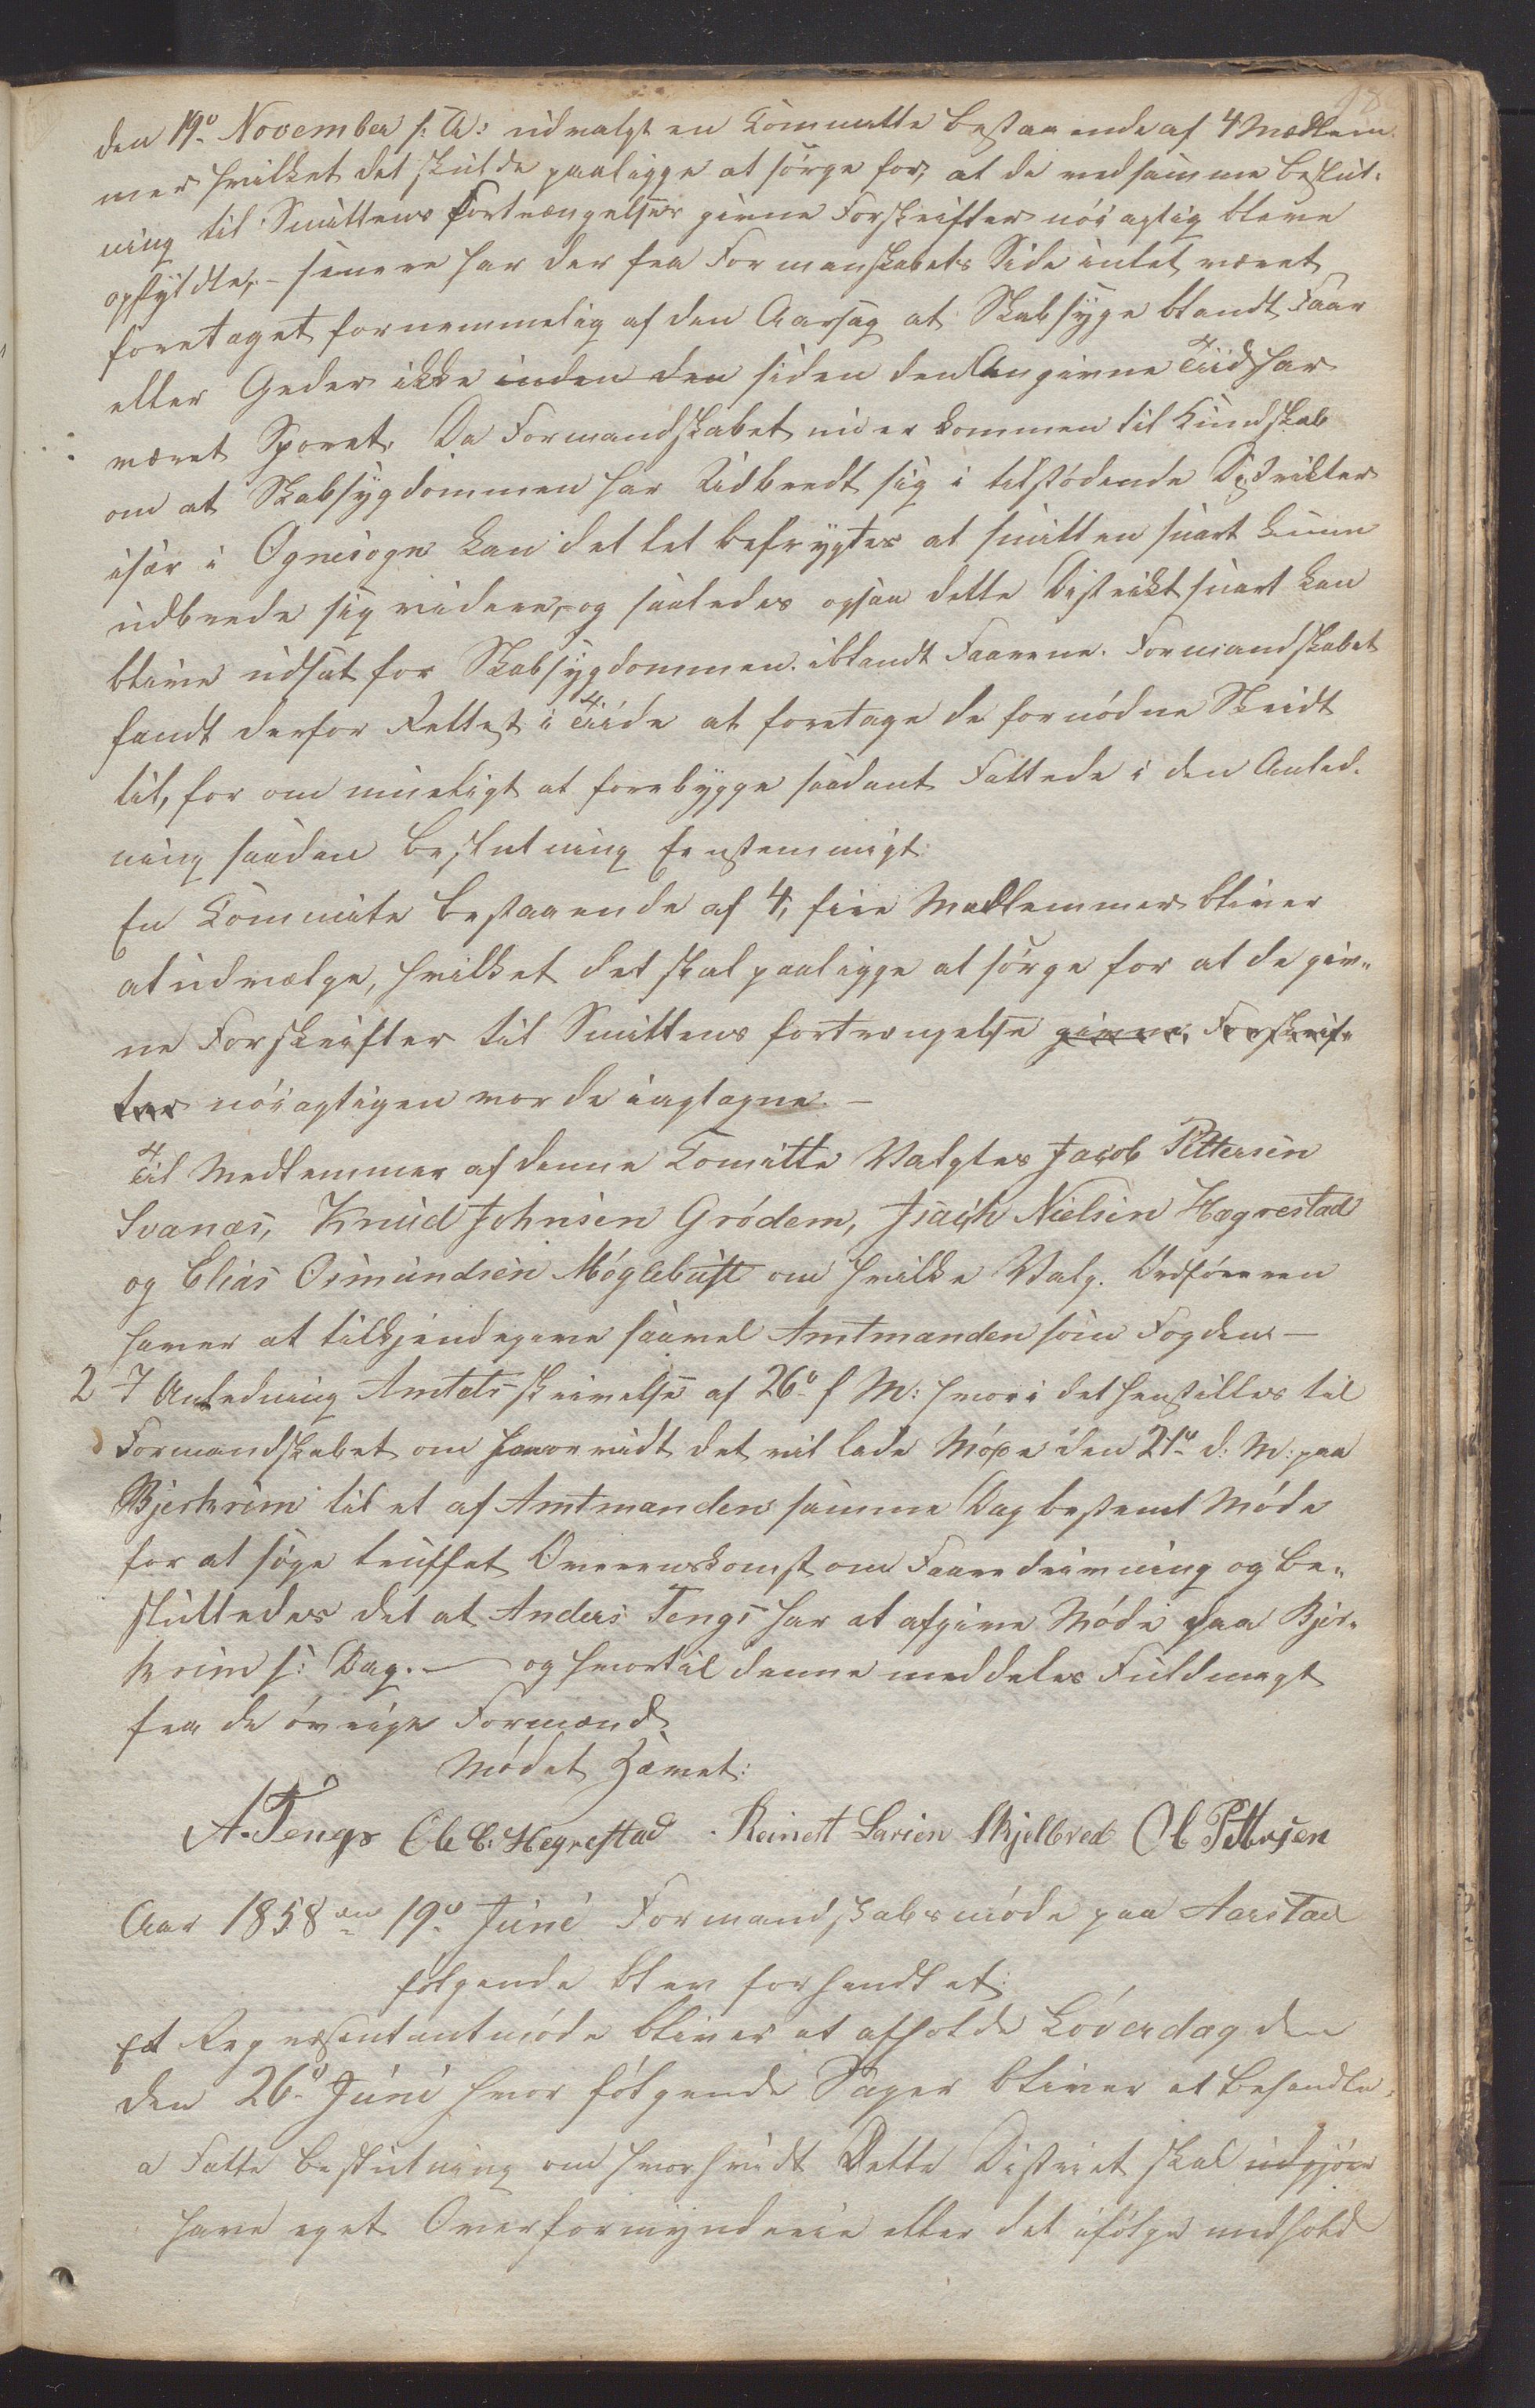 den 19de November s: A: udvalgt en Committe bestaaende af 4 Medlem-
mer hvilket det skulde paaligge at sørge for, at de ved samme beslut-
ning til Smittens Fortrængelser givne Forskrifter nøiagtig bleve
opfyldte, - senere har der fra Formanskabets Side intet været
foretaget fornemmelig af den Aarsag at Skabsyge blandt Faar
eller Geder ikke inden den siden den Angivne Tiid har
været Sporet. Da Formandskabet nu er kommen til Kundskab
om at Skabsygdommen har Udbredt sig i tilstødende Distrikter
især i Ognesogn kan det let befrygtes at smitten snart kunne
udbrede sig videre, og saaledes ogsaa dette Distrikt snart kan
blive udsat for Skabsygdommen iblandt Faarene. Formandskabet
fandt derfor Rettest i Tiide at foretage de fornødne Skridt
til, for om mueligt at forebygge saadant Fattede i den Anled-
ning saadan Beslutning Eenstemmigt:
En Commite bestaaende af 4, fire Medlemmer bliver
at udvælge, hvilket det skal paaligge at sørge for at de giv-
ne Forskrifter til Smittens fortrængelse givne Forskrif-
ter nøiagtigen vorde iagtagne. -
Til Medlemmer af denne Comitte Valgtes Jacob Pettersen
Svanæs, Knud Johnsen Grødem, Isach Nielsen Hægrestad
og Elias Osmundsen Møglebust om hvilke Valg. Ordføreren
haver at tilkjendegive saavel Amtmanden som Fogden -
2 I Anledning Amtets skrivelse af 26de f M: hvori det henstilles til
Formandskabet om hvorvidt det vil lade Møde den 21de d: M: paa
Bjerkrim til et af Amtmanden samme Dag bestemt Møde
for at søge truffet Overenskomst om Faaredrivning og be-
sluttedes det at Anders Tengs har at afgive Møde paa Bjer-
krim s: Dag. - og hvortil denne meddeles Fuldmagt
fra de øvrige Formænd
Mødet Hævet:
A. Tengs Ole C. Hegrestad Reinert Larsen Skjelbred Ol Pettersen
Aar 1858 den 19de Juni Formandskabsmøde paa Aarstad
følgende blev forhandlet:
Et Repræsentantmøde bliver at afholde Løverdag den
den 26de Juni hvor følgende Sager bliver at behandle.
a Fatte beslutning om hvorhvidt Dette Distriet skal udgjøre
have eget Overformynderie eller det ifølge medhold